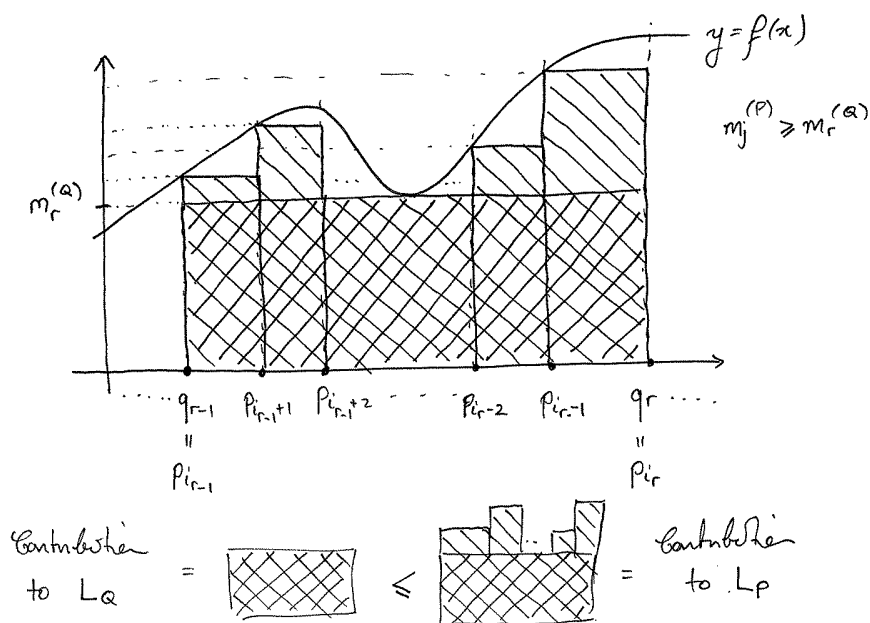 y = f(x)
m_j^(P) ≥ m_r^(Q)
m_r^(Q)
..... q_{r-1} p_{i_{r-1}+1} p_{i_{r-1}+2} - - - p_{i_r-2} p_{i_r-1} q_r .....
= =
p_{i_{r-1}} p_{i_r}
Contribution = ≤ = Contribution
to L_Q to L_P